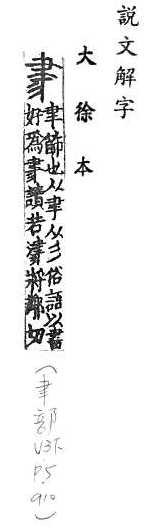 說文解字
大徐本
聿飾也从聿从彡俗語以書
好為𦘔讀若津將鄰切
(聿部
V3下
P5
910)